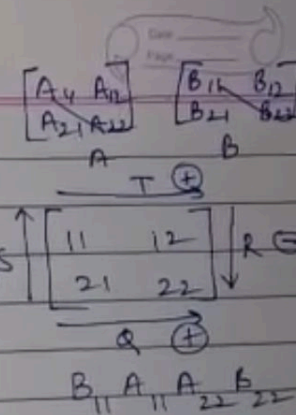 Date
Page
A11 A12 B11 B12
A21 A22 B21 B22
A B
T +
S 11 12 R
21 22
Q +
B11 A11 A22 B22